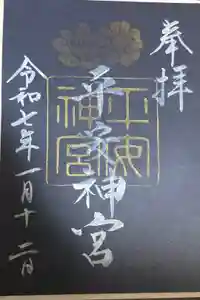 奉拝
平安神宮
平安神宮
令和七年一月十二日